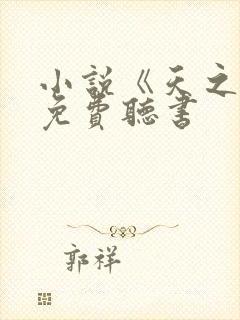 小說《天之
免費聽書
郭祥